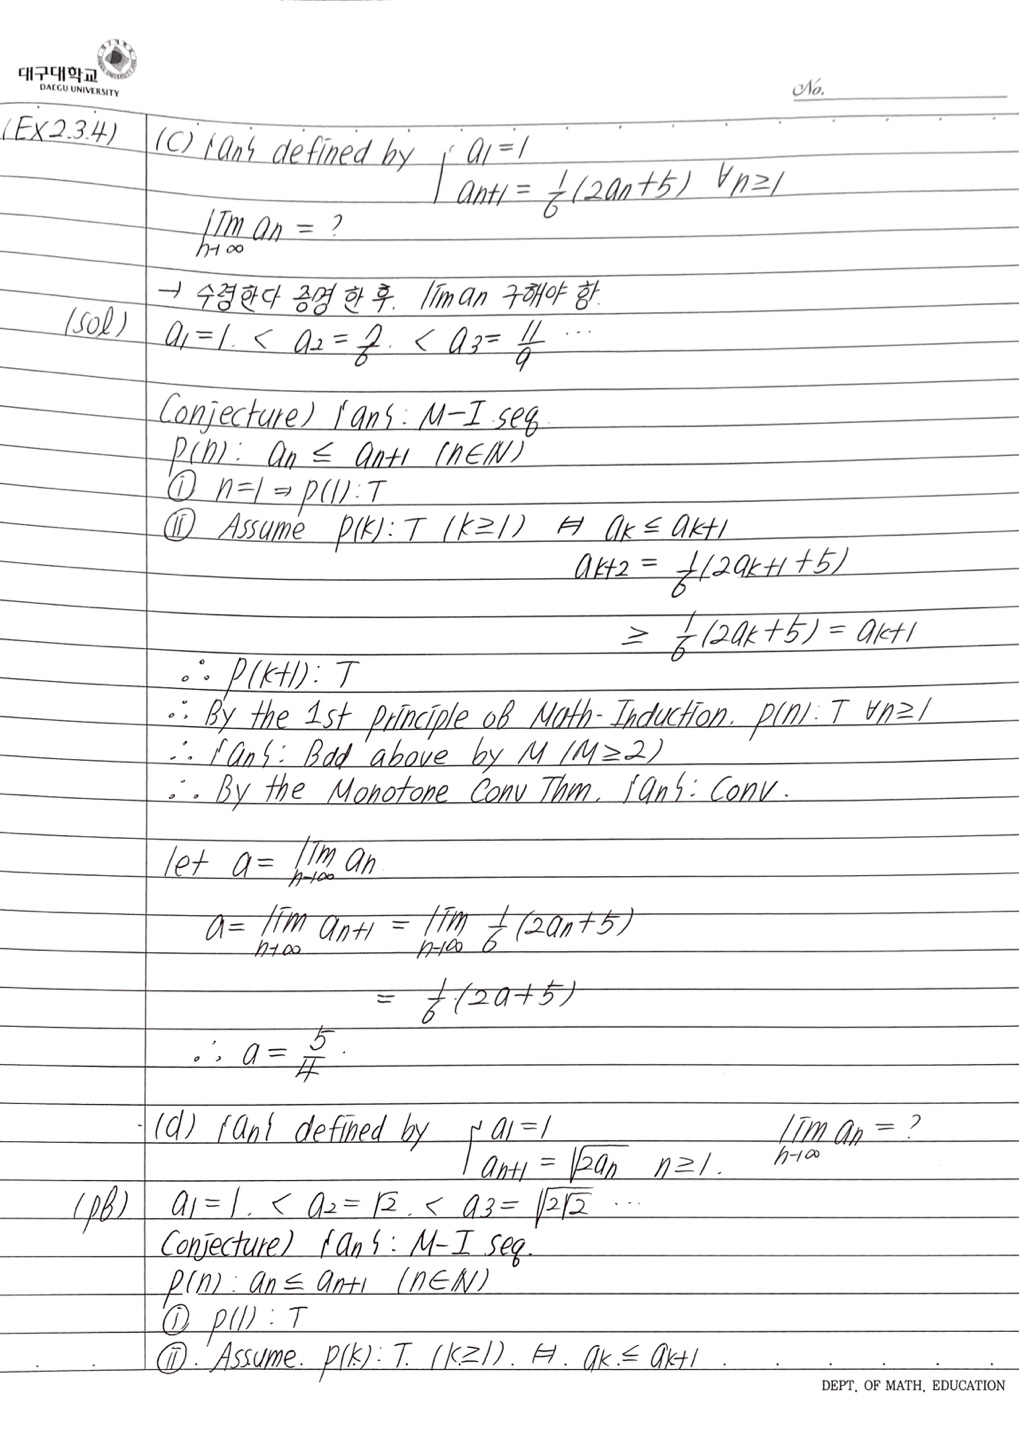 대구대학교
DAEGU UNIVERSITY
No.
(EX2.3.4) (C) {an} defined by { a1=1
an+1 = 1/6(2an+5) ∀n≥1
lim n→∞ an = ?
→ 수렴한다 증명 한 후. lim an 구해야 함.
(sol) a1=1. < a2=7/6. < a3=11/9 ...
Conjecture) {an}: M-I seq.
P(n): an ≤ an+1 (n∈N)
ⓘ n=1 ⇒ P(1): T
ⓘⓘ Assume P(k): T (k≥1) ⇔ ak ≤ ak+1
ak+2 = 1/6(2ak+1+5)
≥ 1/6(2ak+5) = ak+1
∴ P(k+1): T
∴ By the 1st principle of Math-Induction. P(n): T ∀n≥1
∴ {an}: Bdd above by M (M≥2)
∴ By the Monotone Conv Thm. {an}: Conv.
let a = lim n→∞ an
a = lim n→∞ an+1 = lim n→∞ 1/6(2an+5)
= 1/6(2a+5)
∴ a = 5/4.
(d) {an} defined by { a1=1 lim n→∞ an = ?
an+1 = √2an n≥1.
(pf) a1=1. < a2=√2. < a3=√2√2 ...
Conjecture) {an}: M-I seq.
P(n): an ≤ an+1 (n∈N)
ⓘ P(1): T
ⓘⓘ. Assume. P(k): T. (k≥1). ⇔. ak ≤ ak+1
DEPT. OF MATH. EDUCATION